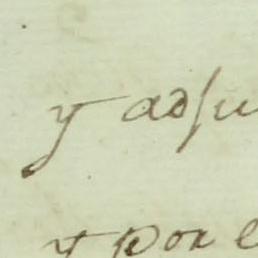 y adju
y por e